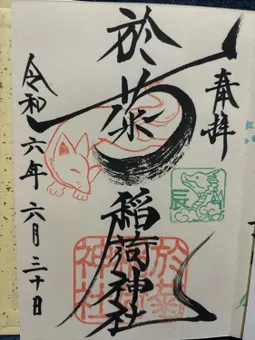 奉拝
於菊稲荷神社
令和六年六月三十日
辰
於菊
神社